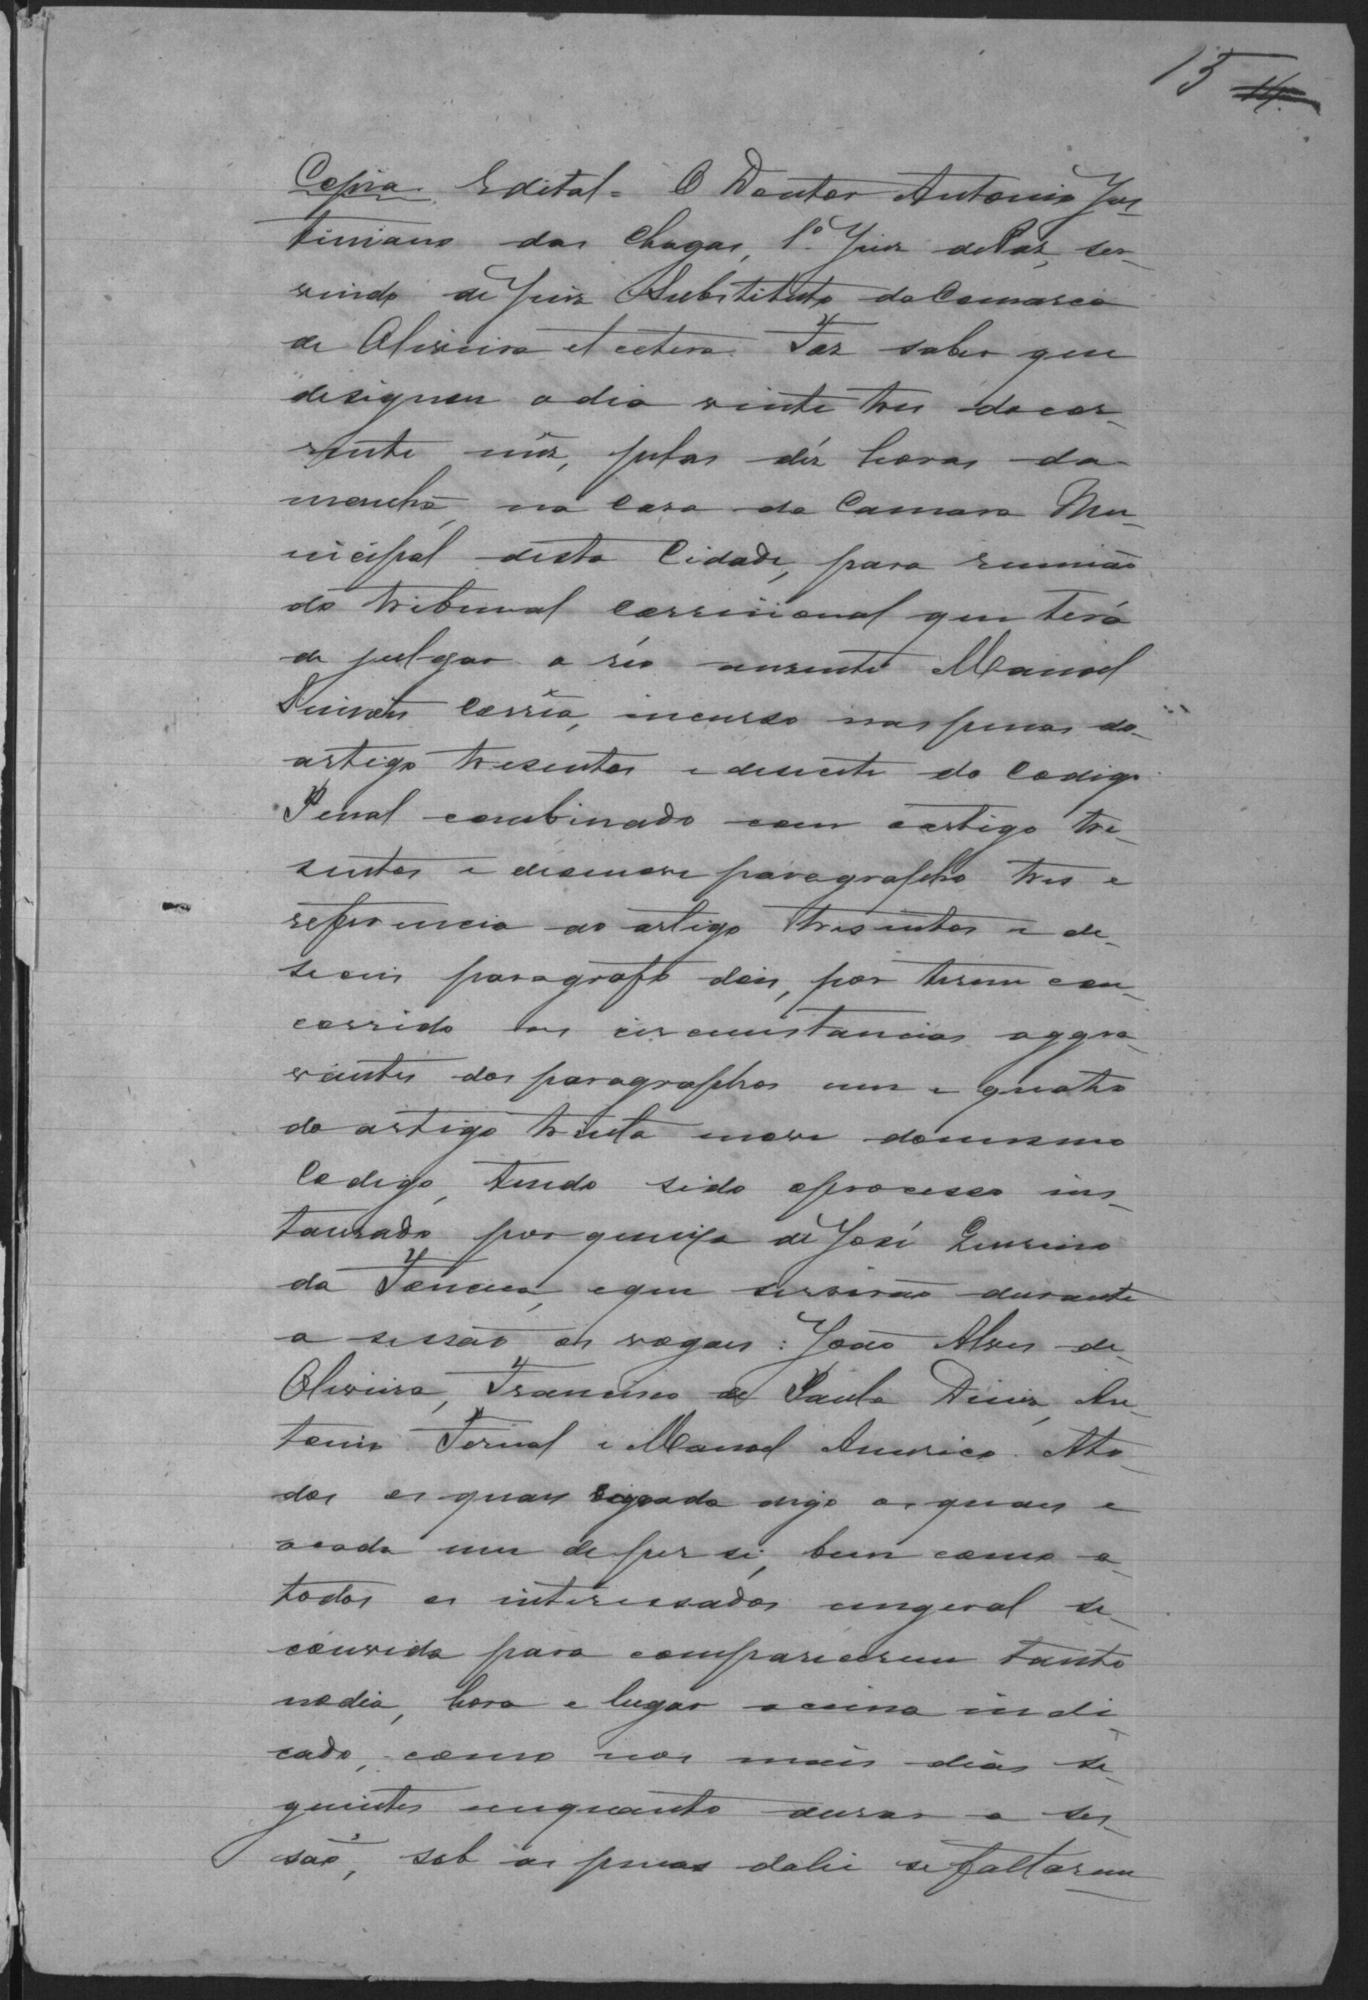 15 14.
Copia. Edital. O Doutor Antonio Jus-
tiniano das Chagas, 1º Juiz de Paz, ser-
vindo de Juiz Substituto da Comarca
de Oliveira et cetera. Faz saber que
designou o dia vinte tres do cor-
rente mêz, pelas déz horas da
manhã, na Casa da Camara Mu-
nicipal desta Cidade, para reunião
do tribunal Correicional que terá
de julgar o réo ausente Manoel
Corrêa, incurso nas penas do
artigo tresentos e deseseti do Codigo
Penal combinado com o artigo tre-
sentos e desenove paragrapho tres e
referencia ao artigo tresentos e de-
seseis paragrafo dois, por terem con-
corrido as circumstancias aggra-
vantes dos paragraphos um e quatro
do artigo trinta nove do mesmo
Codigo, tendo sido o processo ins-
taurado por queixa de José
da Fonceca, e que servirão durante
a sessão os vogaes: João Alves de
Oliveira, Francisco de Paula Diniz, An-
tonio e Manoel Americo. Ato-
dos os quaes digo os quaes e
a cada um de per si, bem como a
todos os interessados em geral se
convida para comparecerem tanto
no dia, hora e lugar acima indi-
cado, como nos mais dias se-
guintes emquanto durar a ses-
são, sob as penas da lei se faltarem